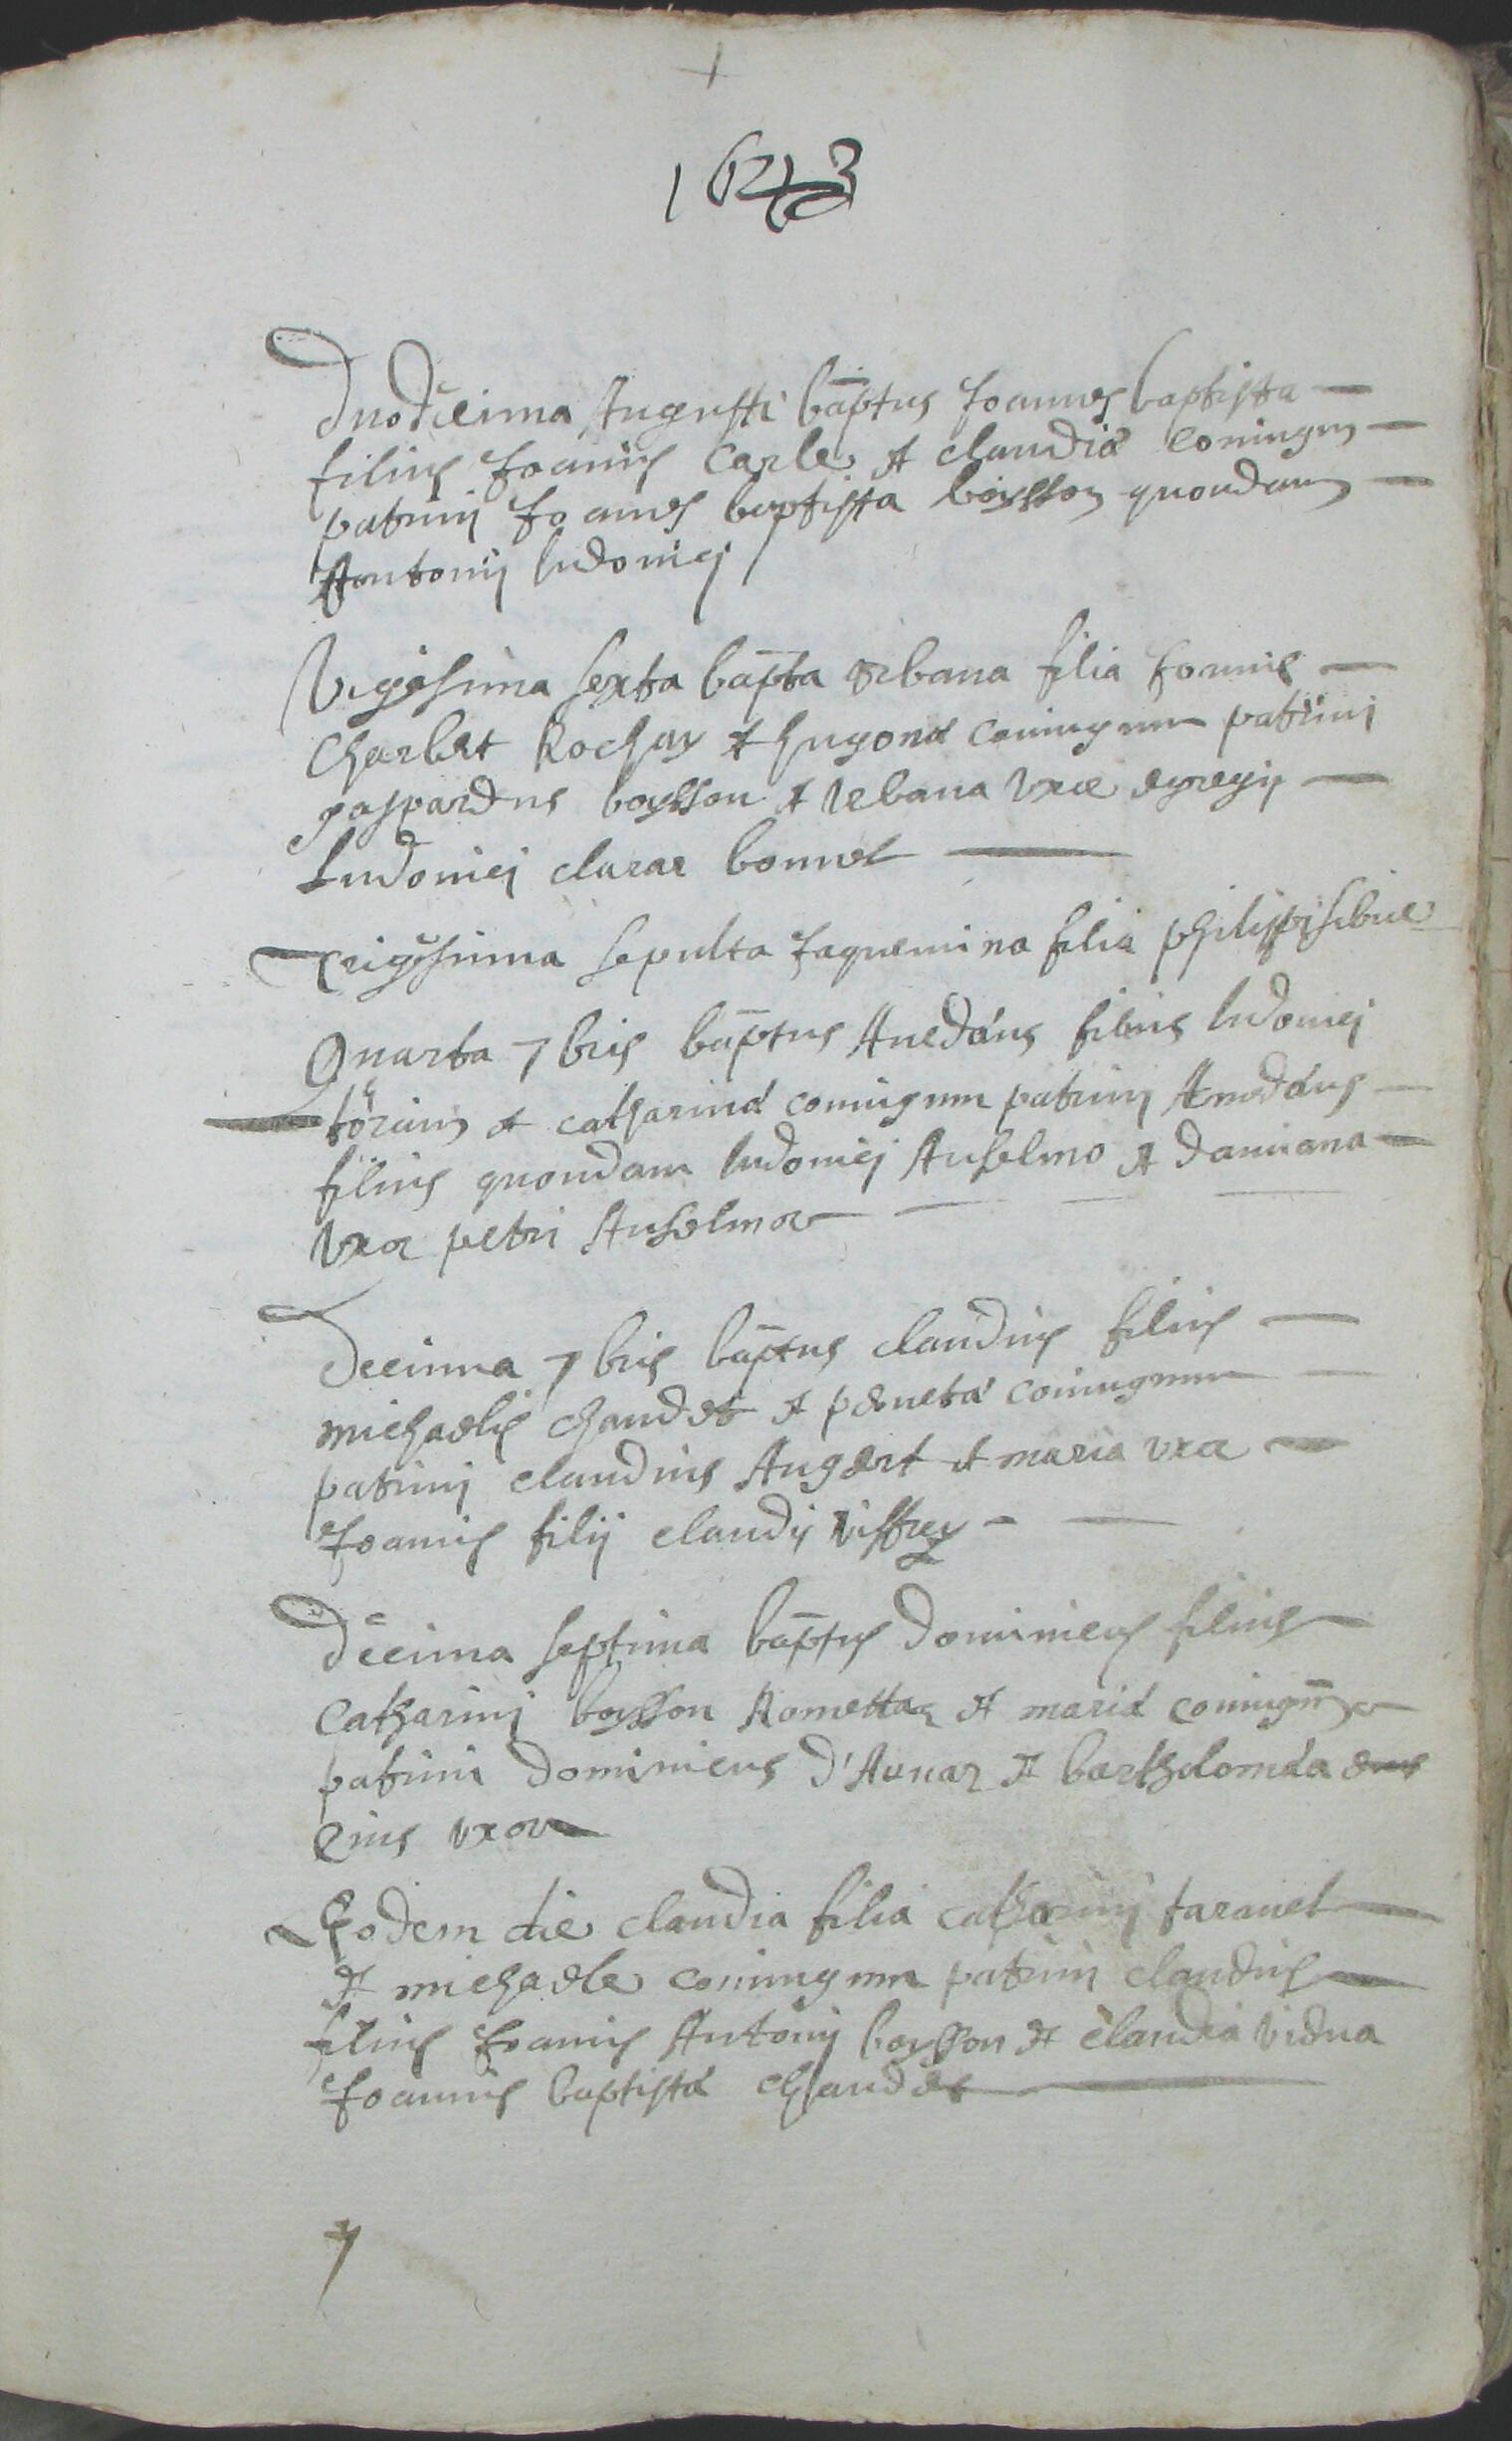 1643
Duodecima Augusti bāptus Joannes baptista
filius Joannis Carle et claudiæ coniugum
patrini Joannes baptista boysson quondam
Antonij ludovicj
Vigesima sexta bāpta Urbana filia Joannis
Charbet Rochax et hugonæ coniugum patrini
gaspardus boysson et Urbana uxor egregij
Ludovicj clarar bonnet
Trigesima sepulta Jaquemina filia philippi
Quarta 7bris bāptus Amedæus filius ludovicj
et catharinæ coniugum patrini Amedæus
filius quondam ludovicj Anselmo et damiana
uxor petri Anselmo
Decima 7bris bāptus claudius filius
michaelis chaudet et penetæ coniugum
patrini claudius Augert et maria uxor
Joannis filij claudij Viffrey
Decima septima bāptus Dominicus filius
Catharini boysson Rometta et mariæ coniugū
patrini Dominicus d'Aunar et bartholomæa
eius uxor
Eodem die claudia filia catharini taravel
et michaele coniugum patrini claudius
filius Joannis Antonij boysson et claudia vidua
Joannis baptistæ chaudet